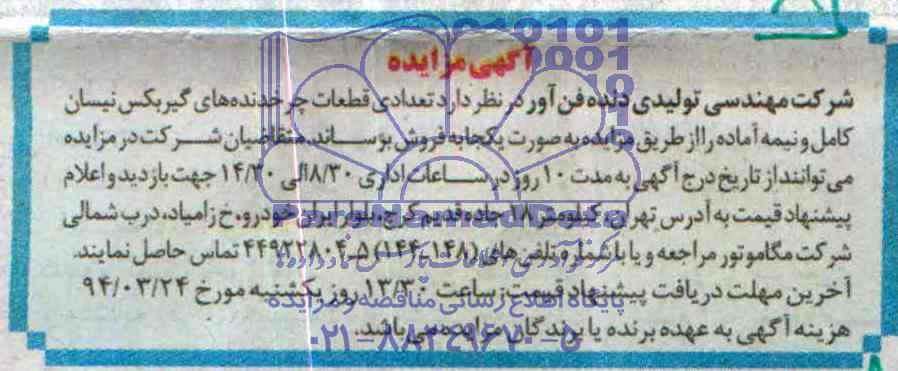 آگهی مزایده
شرکت مهندسی تولیدی دنده فن آور در نظر دارد تعدادی قطعات چرخدنده‌های گیربکس نیسان
کامل و نیمه آماده را از طریق مزایده به صورت یکجا به فروش برساند. متقاضیان شرکت در مزایده
می توانند از تاریخ درج آگهی به مدت ۱۰ روز در ساعات اداری ۸/۳۰ الی ۱۴/۳۰ جهت بازدید و اعلام
پیشنهاد قیمت به آدرس تهران، کیلومتر ۱۸ جاده قدیم کرج، بلوار ایران خودرو، خ زامیاد، درب شمالی
شرکت مگاموتور مراجعه و یا با شماره تلفن های (۱۴۸-۱۴۴) ۵-۴۴۹۲۲۸۰۴ تماس حاصل نمایند.
آخرین مهلت دریافت پیشنهاد قیمت: ساعت ۱۳/۳۰ روز یکشنبه مورخ ۹۴/۰۳/۲۴
هزینه آگهی به عهده برنده یا برندگان مزایده می باشد.
ParsNamadData
پایگاه اطلاع رسانی مناقصه و مزایده
۰۲۱-۸۸۳۴۹۶۷۰-۵